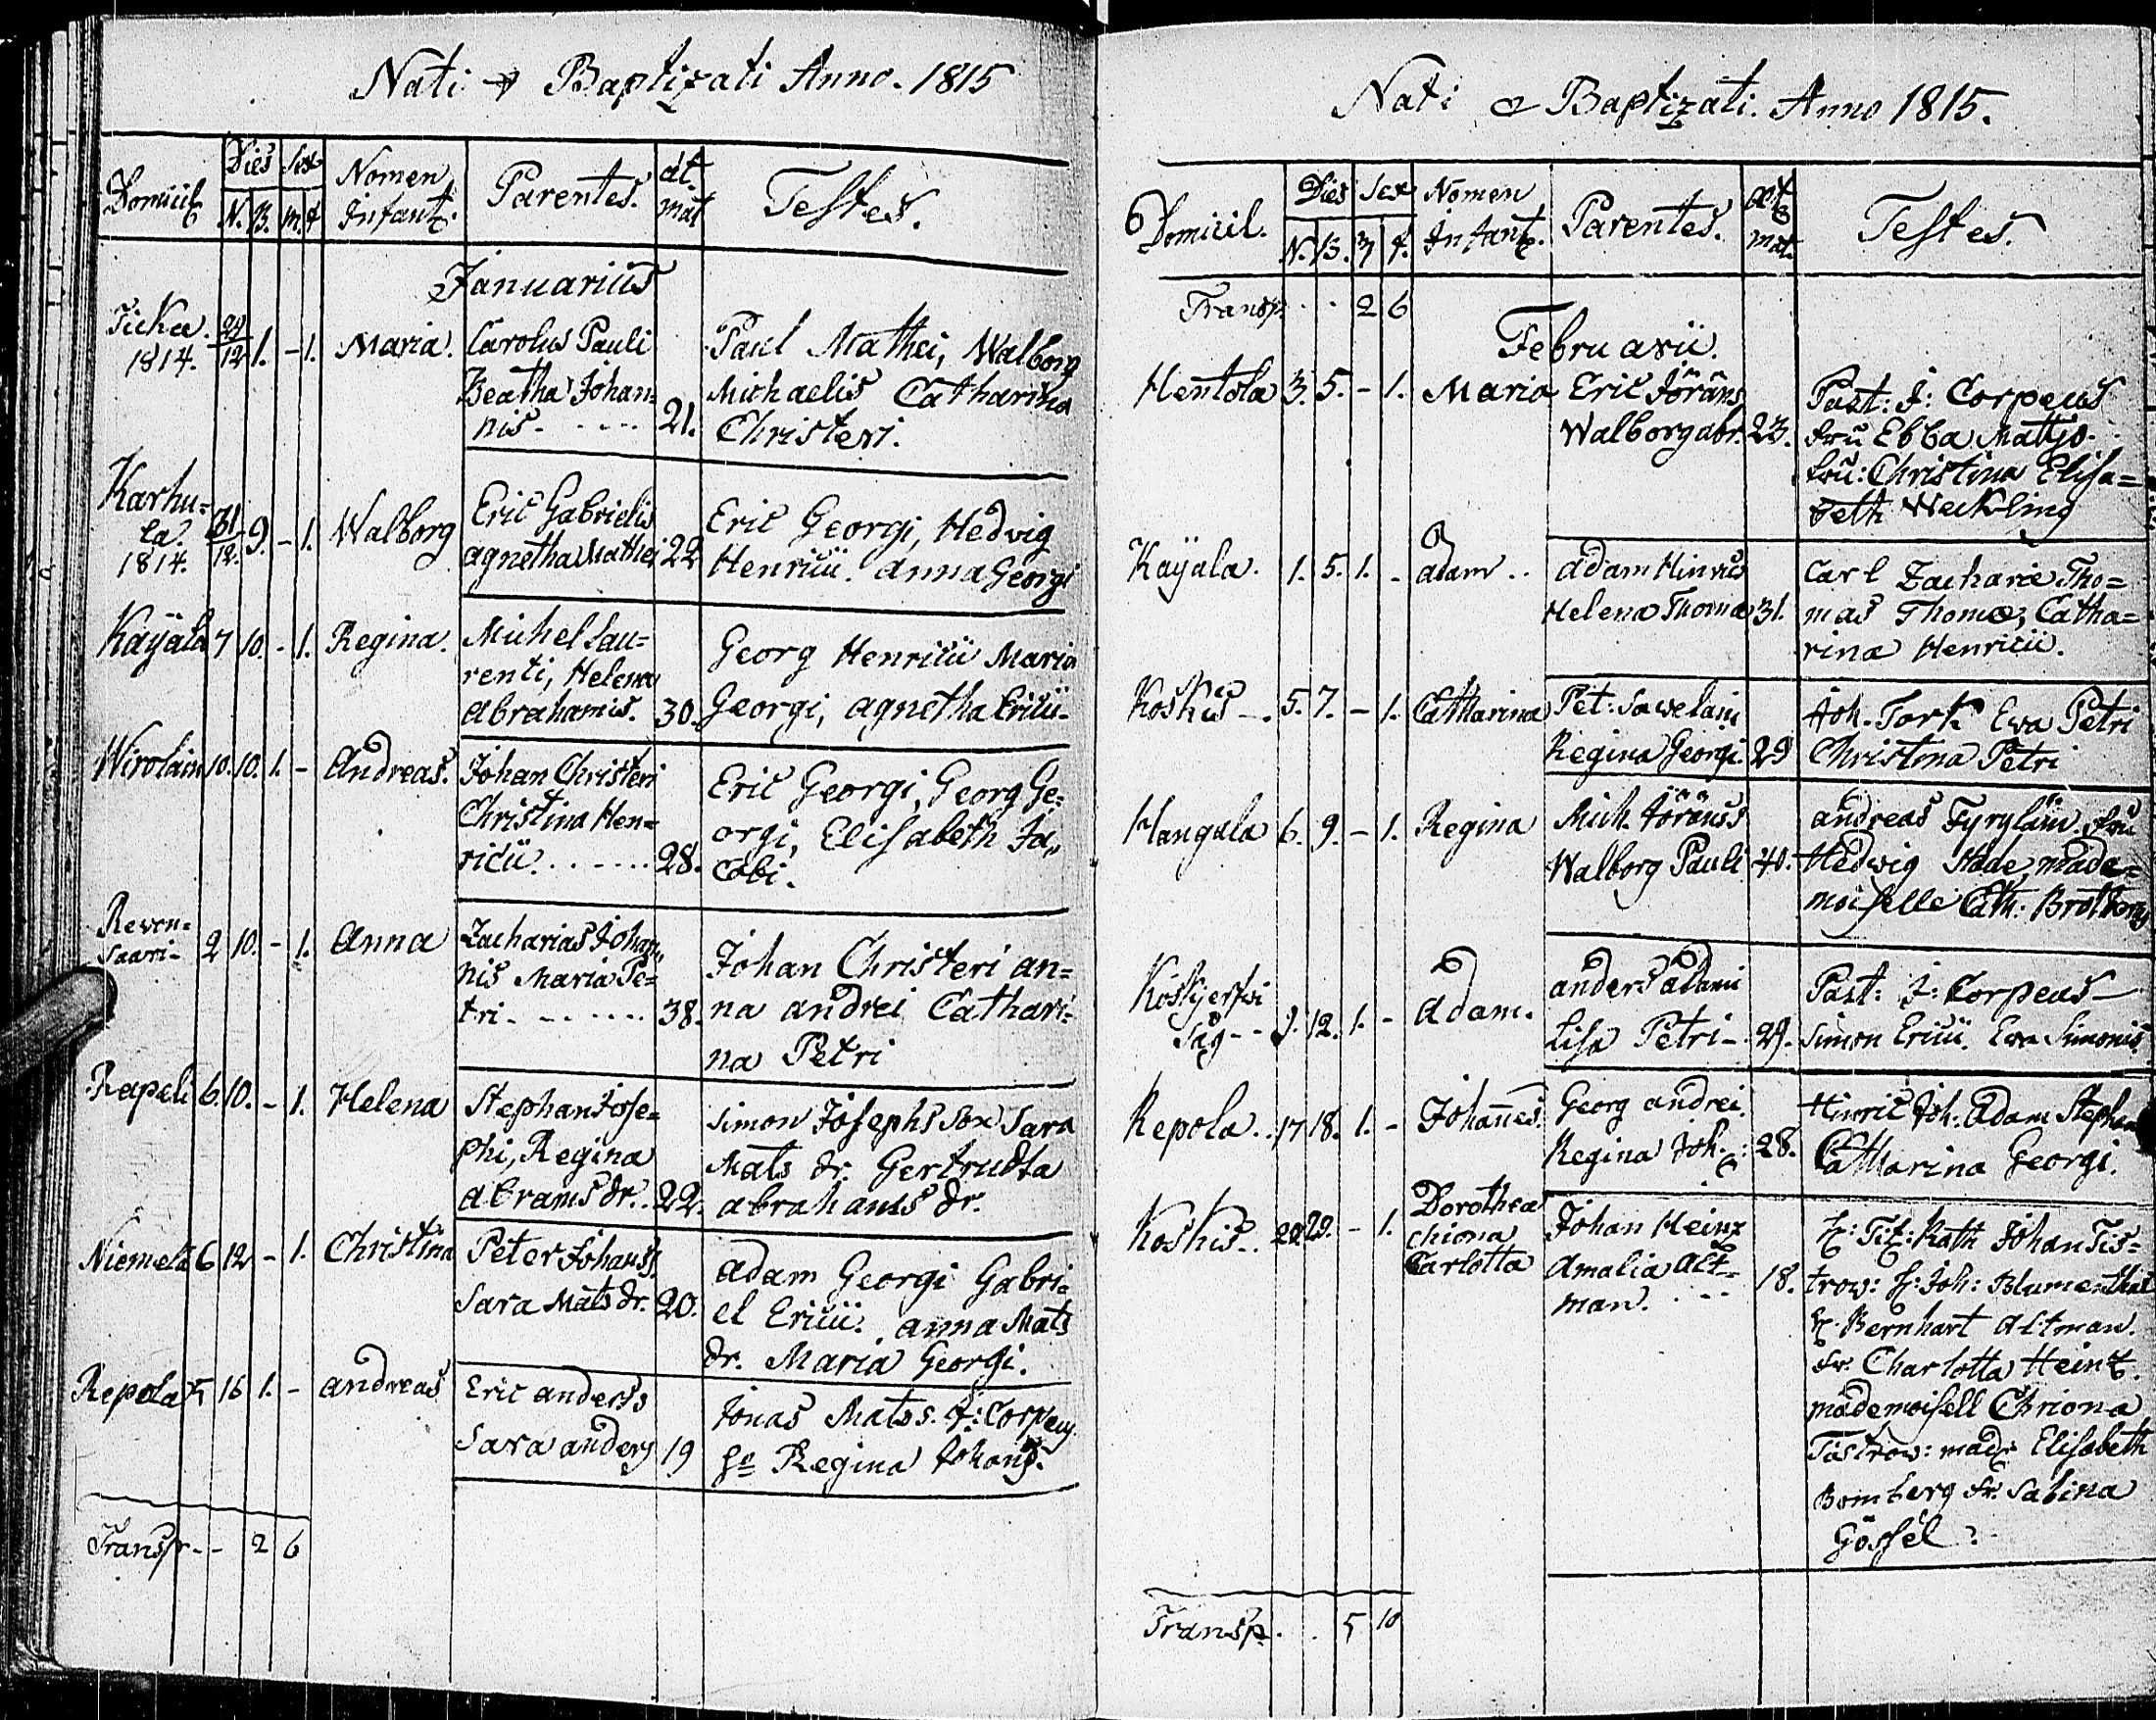 Nati & Baptizati Anno. 1815
Domicil Dies Sex Nomen Infant. Parentes. æt. mat Testes.
N. B. m. f
Januarius
Ticka. 1814. 29/12 1. - 1. Maria. Carolus Pauli
Beatha Johan=
nis. - - - 21.
Paul Mathei, Walborg
Michaelis Catharina
Christeri.
Karhu=
la. 1814. 31/12. 9. - 1. Walborg Eric Gabrielis
agnetha Mathei 22
Eric Georgi, Hedvig
Henricii. anna Georgi
Käÿälä 7 10. - 1. Regina. Michel Lau=
renti, Helena
abrahamis. 30.
Georg Henricii Maria
Georgi, agnetha Ericii.
Wirolain 10. 10. 1. - Andreas. Johan Christeri
Christina Hen=
ricii. . . . . . 28.
Eric Georgi, Georg Ge=
orgi, Elisabeth Ja„
cobi.
Reven=
saari- 2 10. - 1. Anna Zacharias Johan„
nis Maria Pe=
tri - - - - 38.
Johan Christeri an=
na andrei Cathari=
na Petri
Rapali 6. 10. - 1. Helena Stephan Jose=
phi, Regina
abrams dr. 22.
Simon Josephs son Sara
Mats dr. Gertrudta
abrahams dr.
Niemelä 6 12 - 1. Christina Peter Johanss.
Sara Mats dr. 20.
adam Georgi Gabri=
el Ericii. anna Mats
dr. Maria Georgi.
Repola 15 16 1. - andreas Eric anderss
Sara anders 19
Jonas Matss. J: Corpeus
Regina Johans.
Transp - - 2 6
Nati & Baptizati. Anno 1815.
Domicil. Dies Sex Nomen Infant. Parentes. æt mat. Testes.
N. B. M f.
Transp. . . 2 6
Februarii.
Hentola 3. 5. - 1. Maria Eric Jörans
Walborg abr. 23.
Past: J: Corpeus
fru Ebba Mattjs.
fru: Christina Elisa=
beth Weckling
Käÿälä. 1. 5. 1. - adam . . adam Hinrics
Helena Thomæ 31.
Carl Zachariæ Tho=
mas Thomæ, Catha=
rina Henricii.
Koskis -. 5. 7. - 1. Catharina Pet: Sawelain
Regina Georgi. 29
Joh. Tark Ewa Petri
Christina Petri
Hangala 6. 9. - 1. Regina Mich. Jöranss
Walborg Pauli 40.
andreas Tyryläin. fru
Hedwig Stade, made=
moiselle Cath. Brotberg
Koskijerfwi
Såg - - 9. 12. 1. - Adam. anders adami
Lisa Petri - 29.
Past: J: Corpeus -
Simon Ericii. Ewa Simonis
Repola. . 17 18. 1. - Johannes. Georg andrei.
Regina Joh.: 28.
Hinric Joh. Adam Stephan
Catharina Georgi.
Koskis. . 22. 29. - 1. Dorothea
Chiona
Carlotta
Johan Heinz
Amalia Alt=
man. . . - 18.
H: Tit: Rath Johan Tis=
trow: H: Joh: Blumenthal
H: Bernhart Altman.
fr. Charlotta Heintz.
mademoisell Chriona
Tistrow: mad: Elisabeth
Bomberg fr. Sabina
Gössel.
Transp. . . 5 10